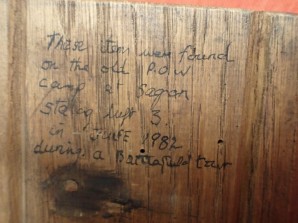 These item were found
on the old P.O.W
camp at Sagan
stalag luft 3.
in JUNE 1982
during a Battlefield tour